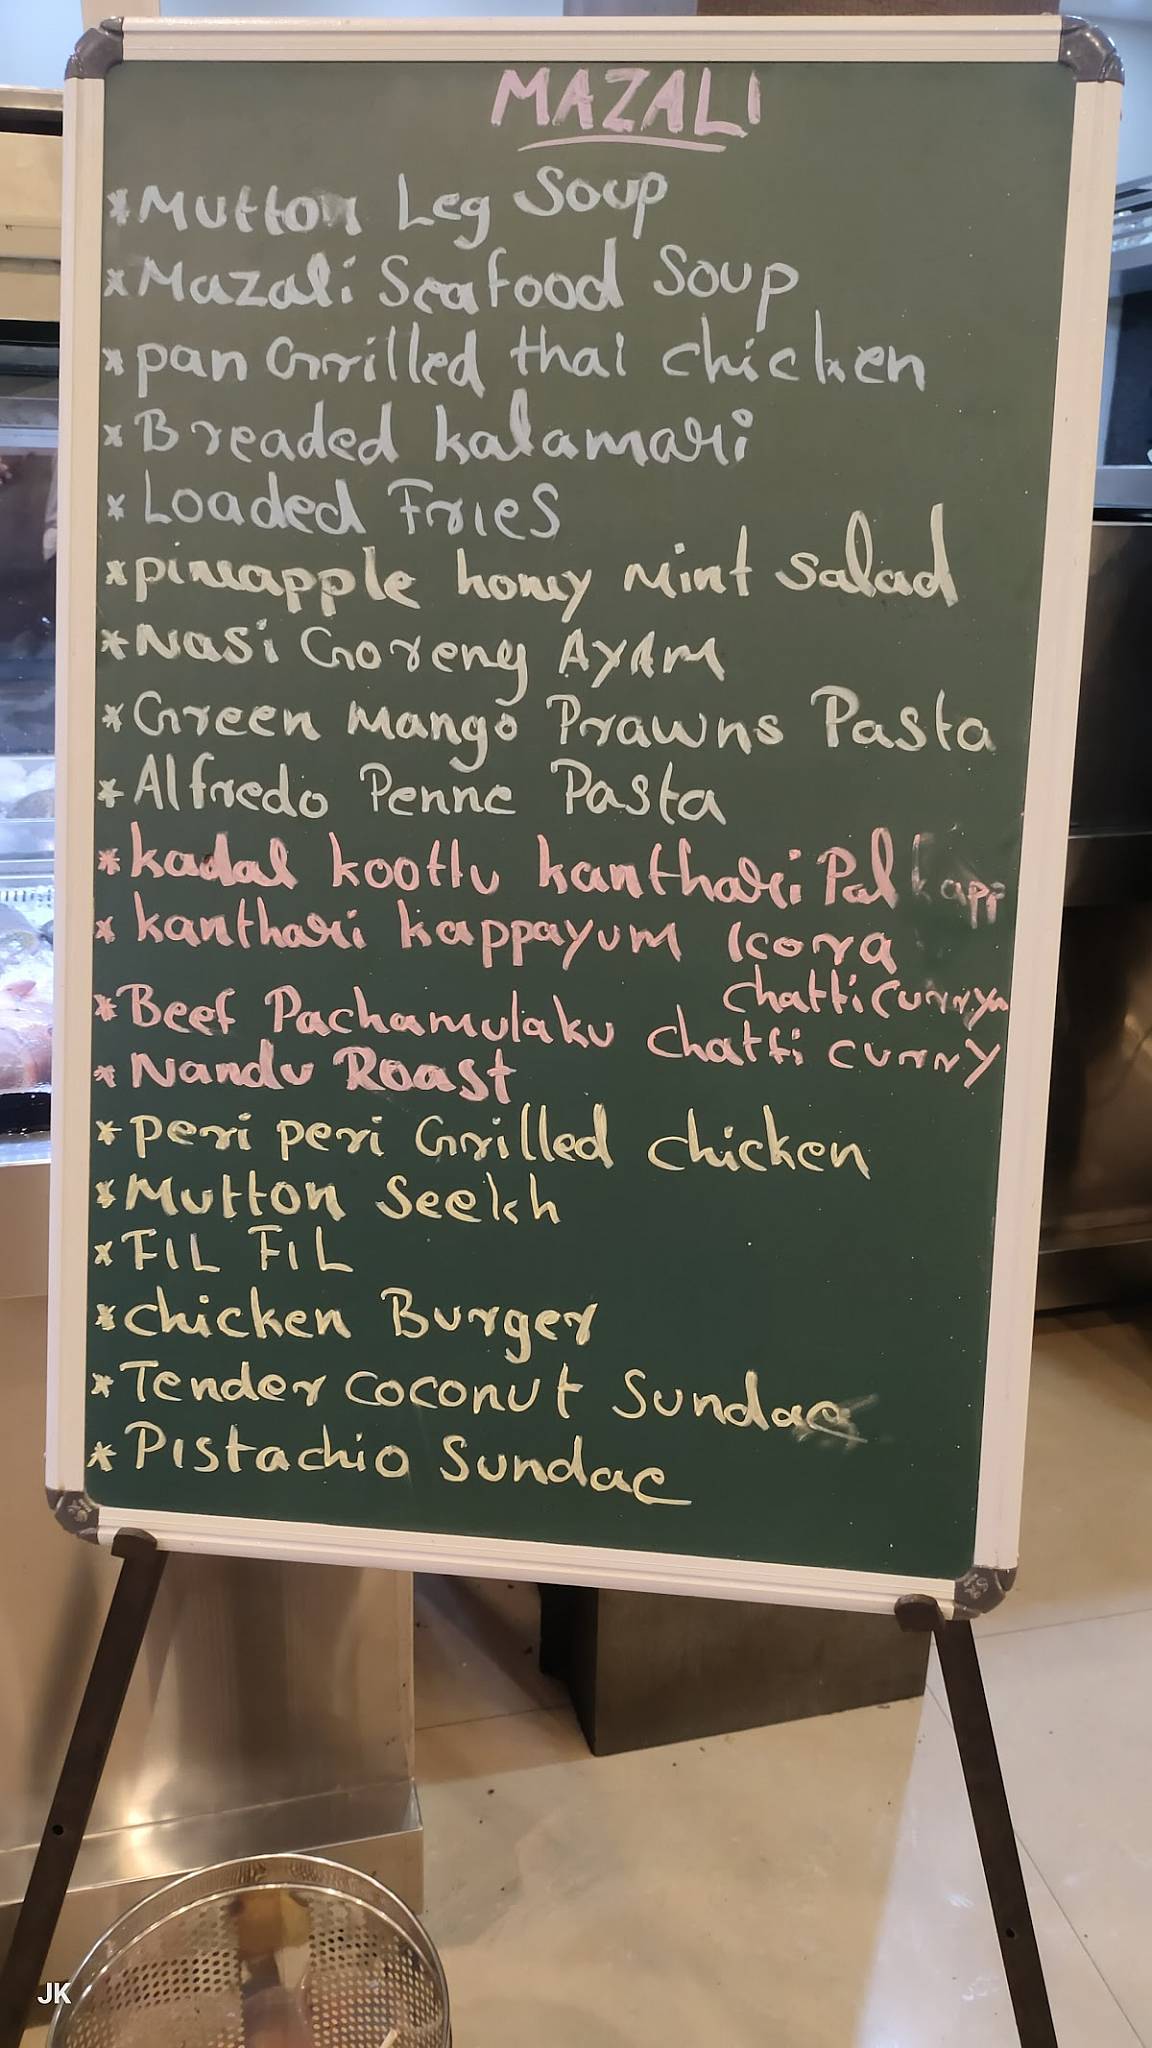 MAZALI
* Mutton Leg Soup
* Mazali Seafood Soup
* pan Grilled thai chicken
* Breaded kalamari
* Loaded Fries
* pineapple honey Mint Salad
* Nasi Goreng AYAM
* Green Mango Prawns Pasta
* Alfredo Penne Pasta
* kadal koottu kanthari Pal kapi
* kanthari kappayum kora
chatti curry
* Beef Pachamulaku chatti curry
* Nandu Roast
* peri peri Grilled chicken
* Mutton Seekh
* FIL FIL
* chicken Burger
* Tender coconut Sundae
* Pistachio Sundae
JK